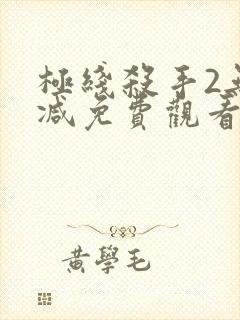 極綫殺手2無
減免費觀看
黃學毛